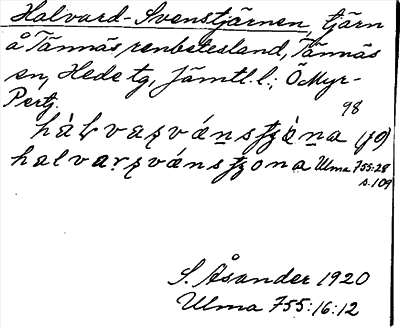 Halvard-Svenstjärnen, tjärn
å Tännäs renbetesland, Tännäs
sn, Hede tg, Jämtl. l.; Ö Myr-
Pertj.
98
(f9)
Ulma 755:28
s. 109
S. Åsander 1920
Ulma 755:16:12